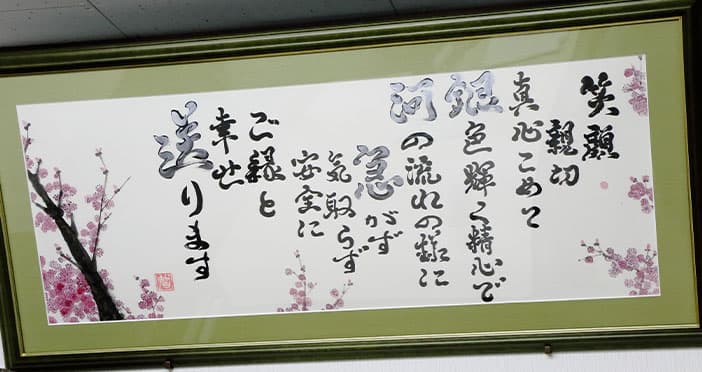 笑顔
親切
真心こめて
銀色輝く精心で
河の流れの様に
急がず
気取らず
安全に
ご縁と
幸せ
送ります